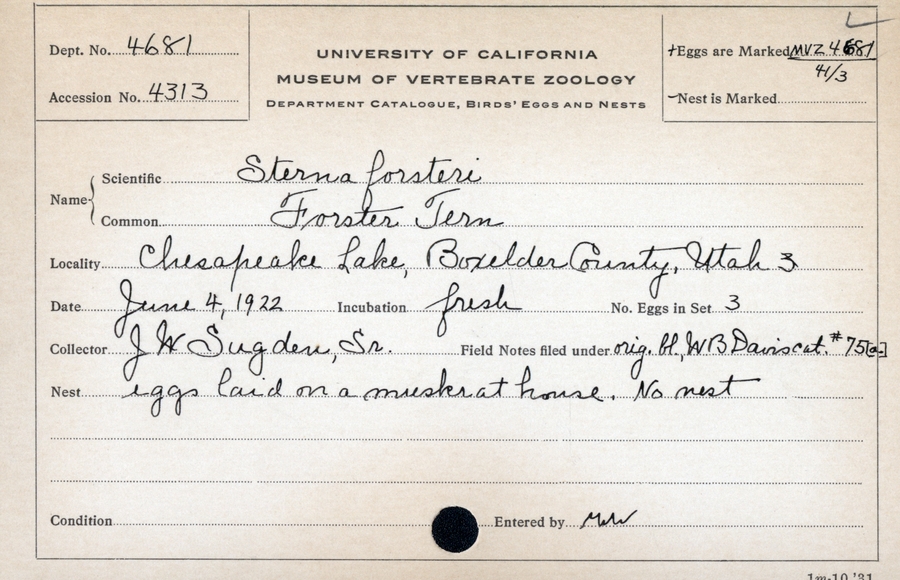 Dept. No. 4681
Accession No. 4313
UNIVERSITY OF CALIFORNIA
MUSEUM OF VERTEBRATE ZOOLOGY
DEPARTMENT CATALOGUE, BIRDS' EGGS AND NESTS
+Eggs are Marked MVZ 4681
41/3
-Nest is Marked
Name
Scientific Sterna forsteri
Common Forster Tern
Locality Chesapeake Lake, Boxelder County, Utah
Date June 4, 1922 Incubation fresh No. Eggs in Set 3
Collector J W Sugden, Sr. Field Notes filed under orig. bl., WB Davis cat. #75[a.]
Nest eggs laid on a muskrat house. No nest
Condition Entered by
1m-10 '31